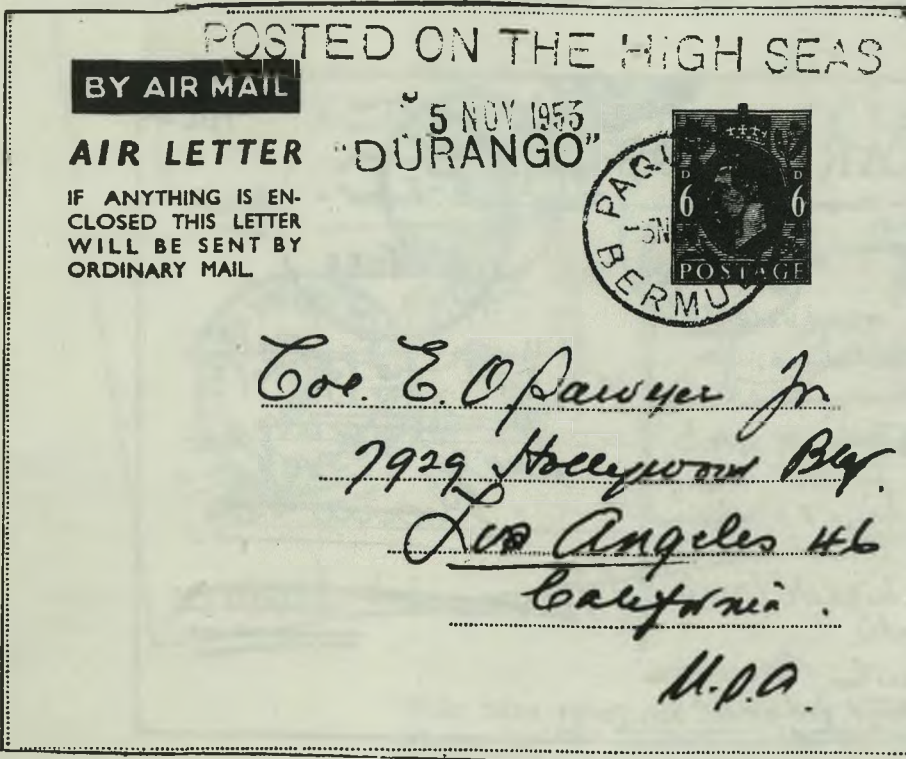 POSTED ON THE HIGH SEAS
BY AIR MAIL
5 NOV 1953
"DURANGO"
AIR LETTER
IF ANYTHING IS EN-
CLOSED THIS LETTER
WILL BE SENT BY
ORDINARY MAIL.
PAQU
5 N
BERMU
D D
6 6
POSTAGE
Col. E. O Sawyer Jr
7929 Hollywood
Los Angeles 46
California.
U.S.A.